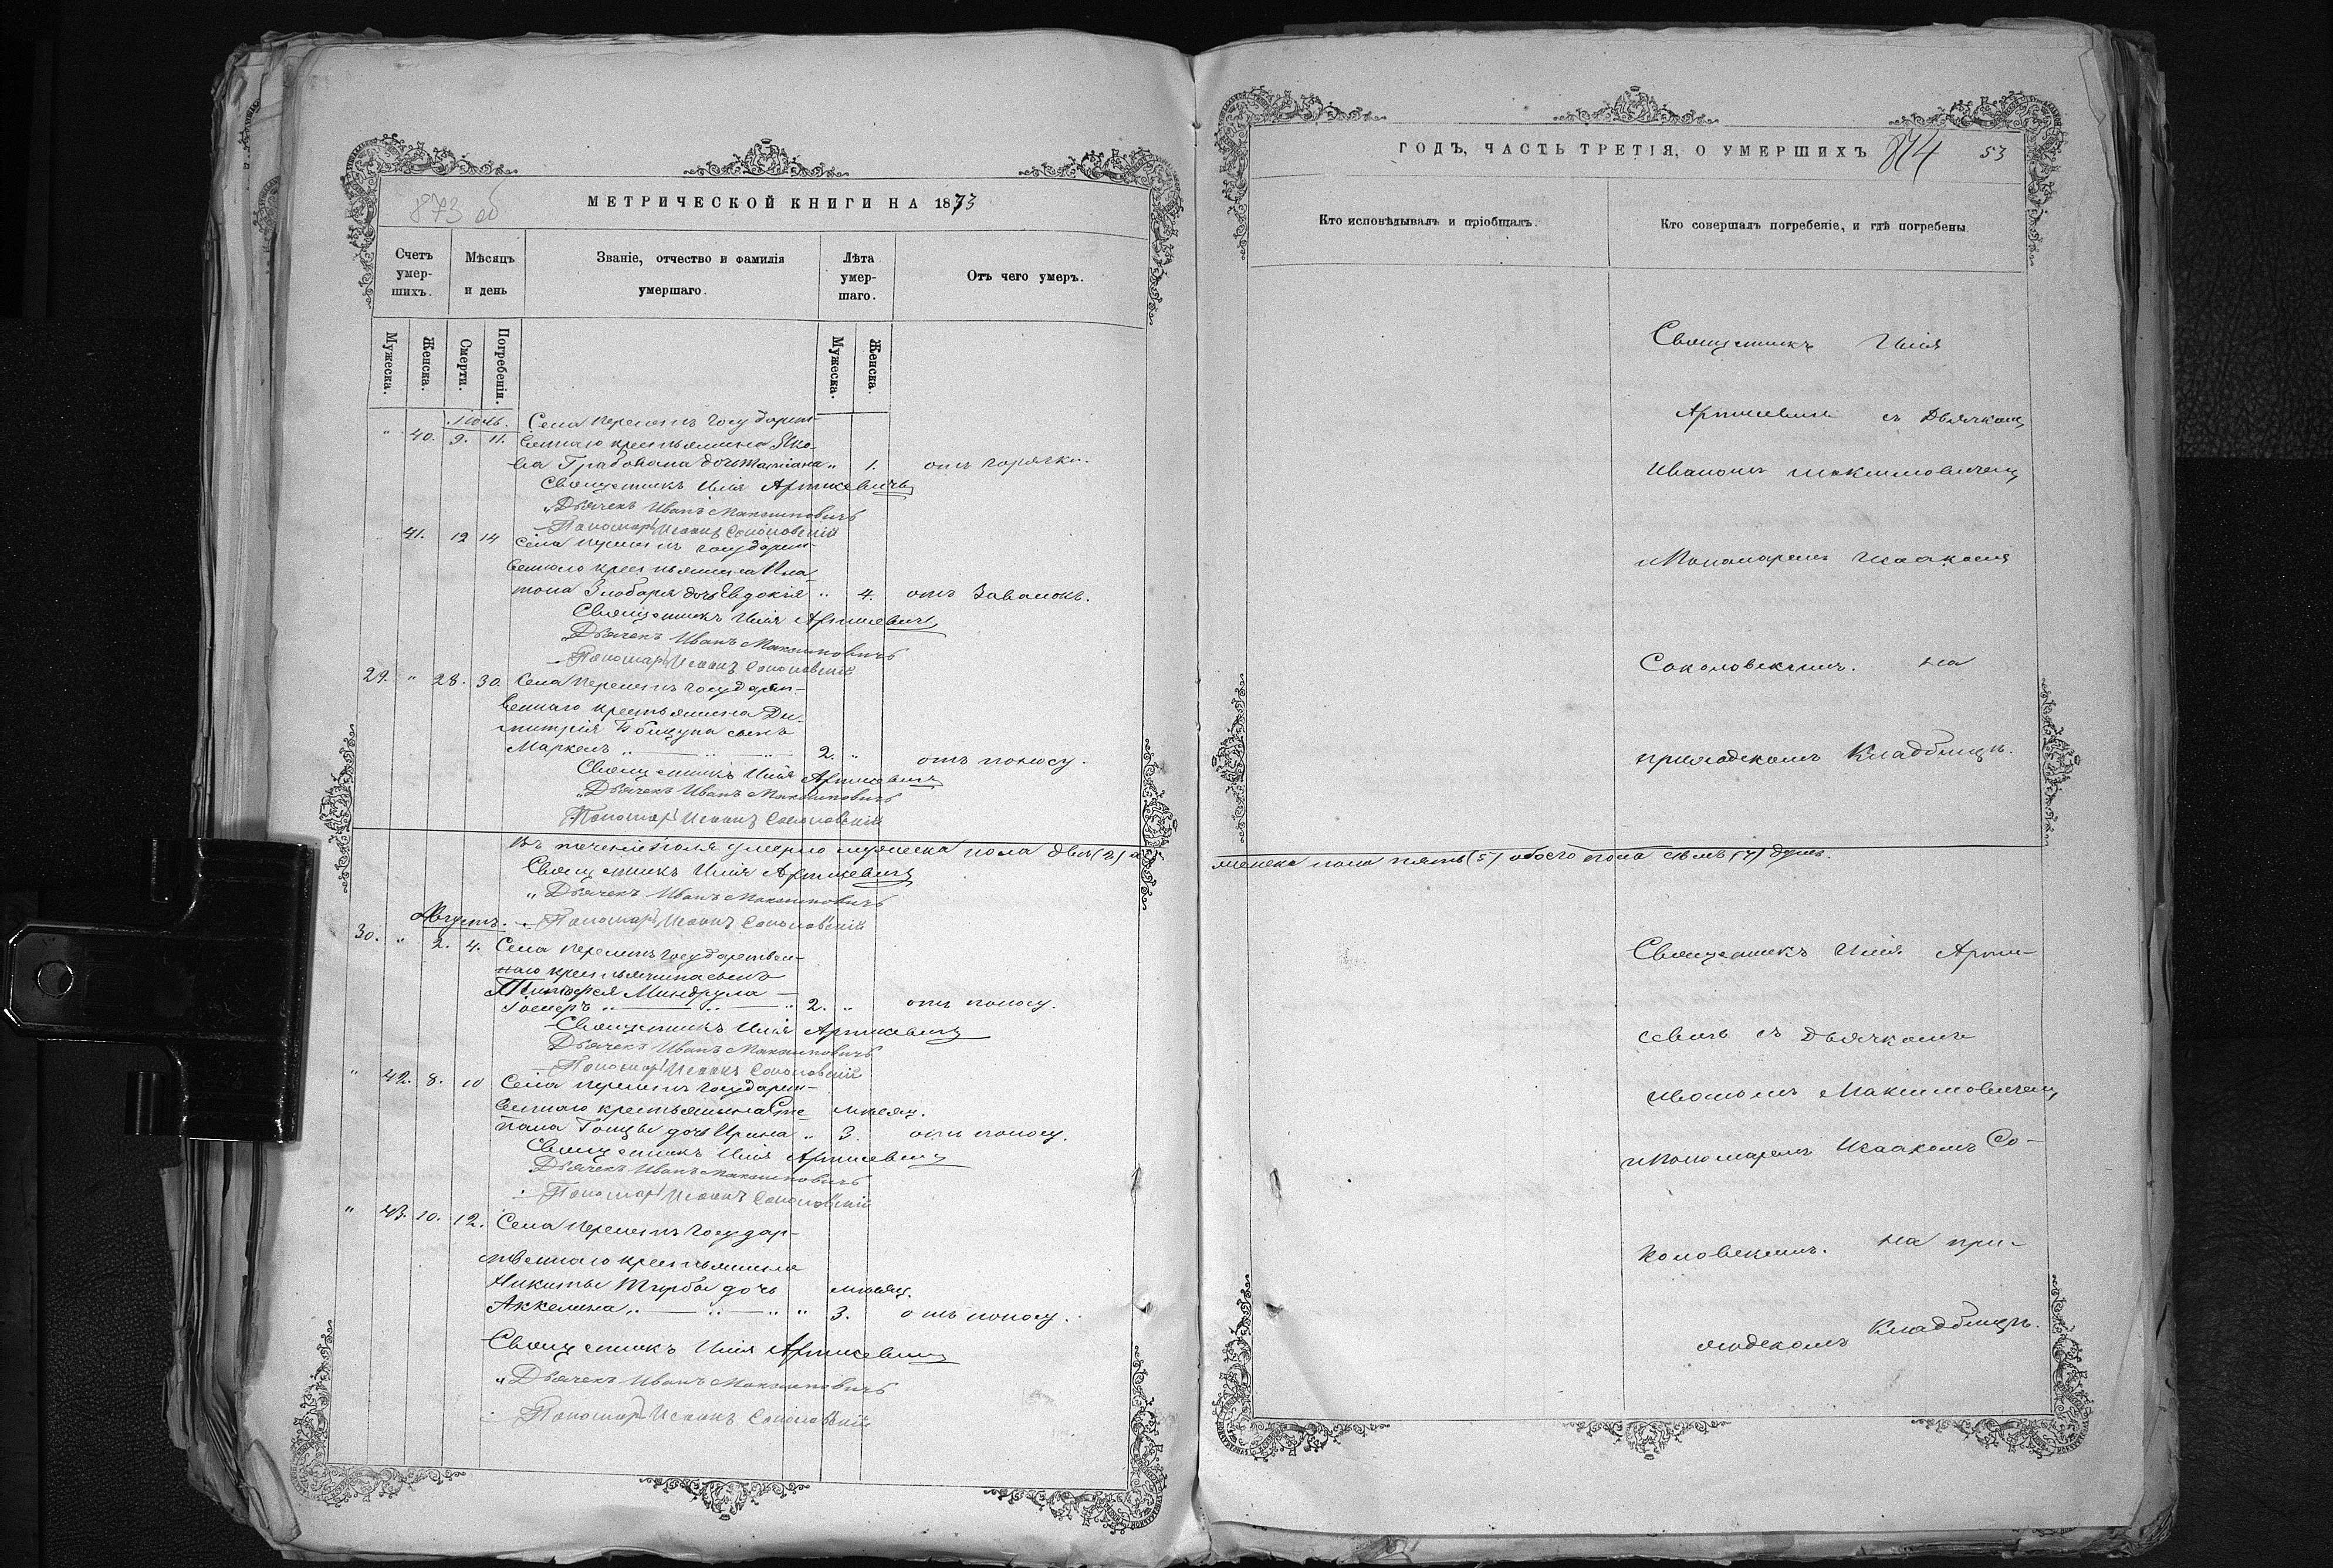 873 об
МЕТРИЧЕСКОЙ КНИГИ НА 1873
Счетъ умер-шихъ.
Мѣсяцъ и день
Званіе, отчество и фамилія умершаго.
Лѣта умер-шаго.
Отъ чего умеръ.
Мужеска.
Женска.
Смерти.
Погребенія.
Мужеска.
Женска.
Іюль.
Села государст-
" 40. 9. 11. веннаго крестьянина Яко-
ва дочь " 1. отъ горячки.
Священникъ Илія Артисевичъ
Дьячекъ Иванъ Максимовичъ
Пономарь Исаакъ Соколовскій
" 41. 12 14 Села государст-
веннаго крестьянина Пла-
тона Злобаря дочь Евдокія " 4. отъ Завалокъ.
Священникъ Илія Артисевичъ
Дьячекъ Иванъ Максимовичъ
Пономарь Исаакъ Соколовскій
29. " 28. 30. Села государст-
веннаго крестьянина Ди-
митрія сынъ
Маркелъ 2. " отъ поносу.
Священникъ Илія Артисевичъ
Дьячекъ Иванъ Максимовичъ
Пономарь Исаакъ Соколовскій
Въ теченіи Іюля умерло мужеска пола два (2) а
Священникъ Илія Артисевичъ
Дьячекъ Иванъ Максимовичъ
Августъ. Пономарь Исаакъ Соколовскій
30. " 2. 4. Села государствен-
наго крестьянина сынъ
Тимофея Миндрула
2. " отъ поносу.
Священникъ Илія Артисевичъ
Дьячекъ Иванъ Максимовичъ
Пономарь Исаакъ Соколовскій
" 42. 8. 10 Села государст-
веннаго крестьянина Сте- мѣсяц.
пана дочь Ирина " 3. отъ поносу.
Священникъ Илія Артисевичъ
Дьячекъ Иванъ Максимовичъ
Пономарь Исаакъ Соколовскій
" 43. 10. 12. Села государ-
ственнаго крестьянина
Никиты дочь мѣсяц.
Аккелина " 3. отъ поносу.
Священникъ Илія Артисевичъ
Дьячекъ Иванъ Максимовичъ
Пономарь Исаакъ Соколовскій
ГОДЪ, ЧАСТЬ ТРЕТІЯ, О УМЕРШИХЪ 874 53
Кто исповѣдывалъ и пріобщалъ.
Кто совершалъ погребеніе, и гдѣ погребены.
Священникъ Илія
Артисевичъ съ Дьячком
Иваномъ Максимовичем
и Пономаремъ Исаакомъ
Соколовскимъ. на
приходскомъ Кладбищѣ.
женска пола пять (5) обоего пола семь (7) душъ.
Священникъ Илія Арти-
севичъ съ Дьячкомъ
Иваномъ Максимовичем
и Пономаремъ Исаакомъ Со-
коловскимъ. на при-
ходскомъ Кладбищѣ.